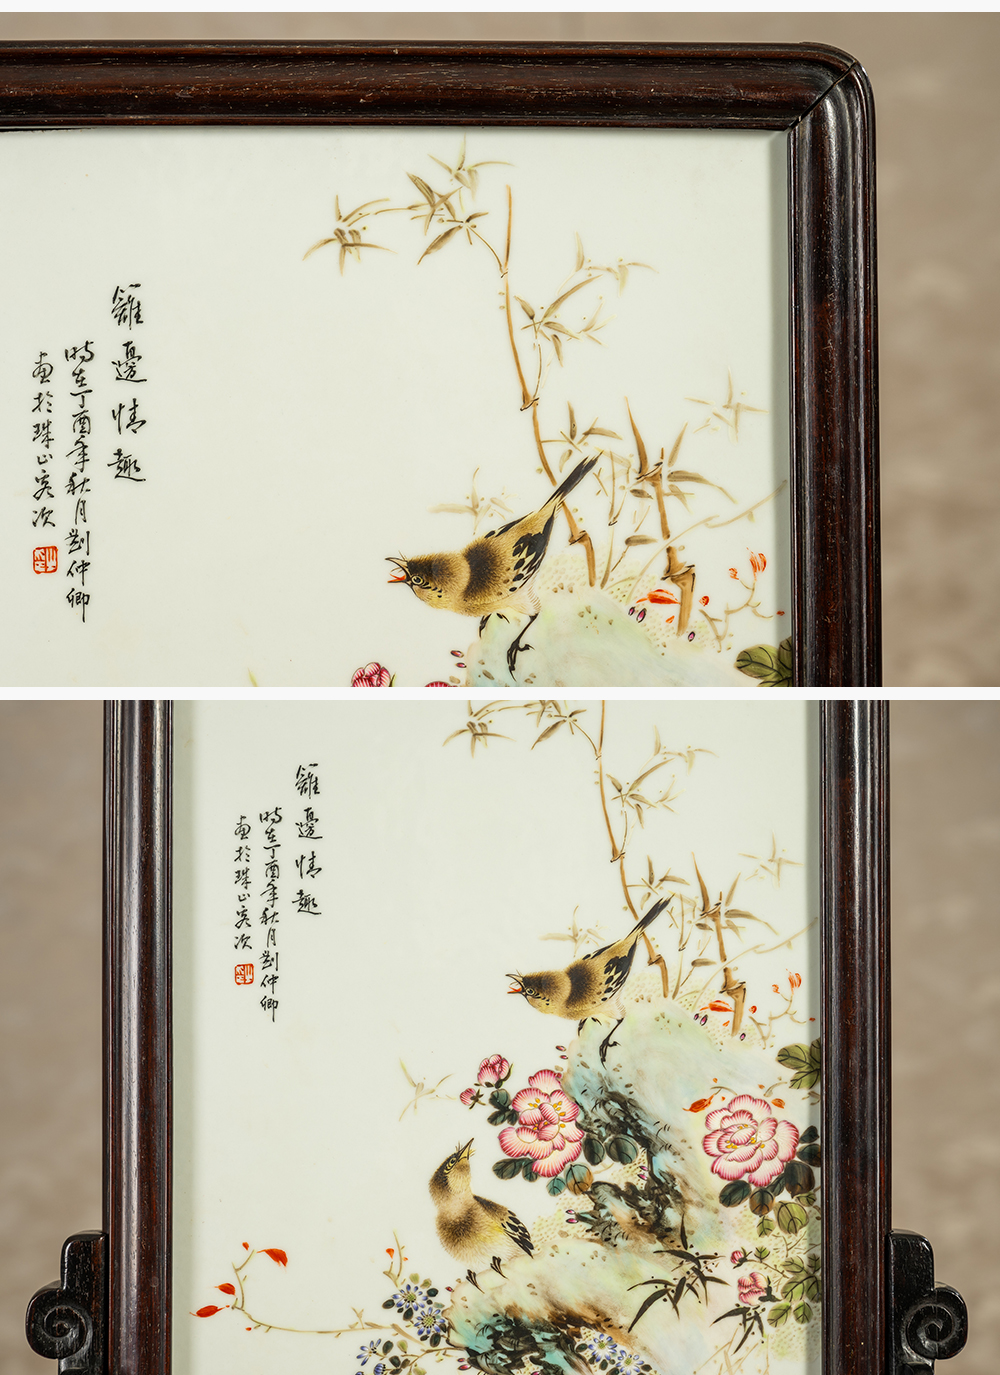 籬邊情趣
時在丁酉年秋月劉仲卿
畫於珠山客次
籬邊情趣
時在丁酉年秋月劉仲卿
畫於珠山客次